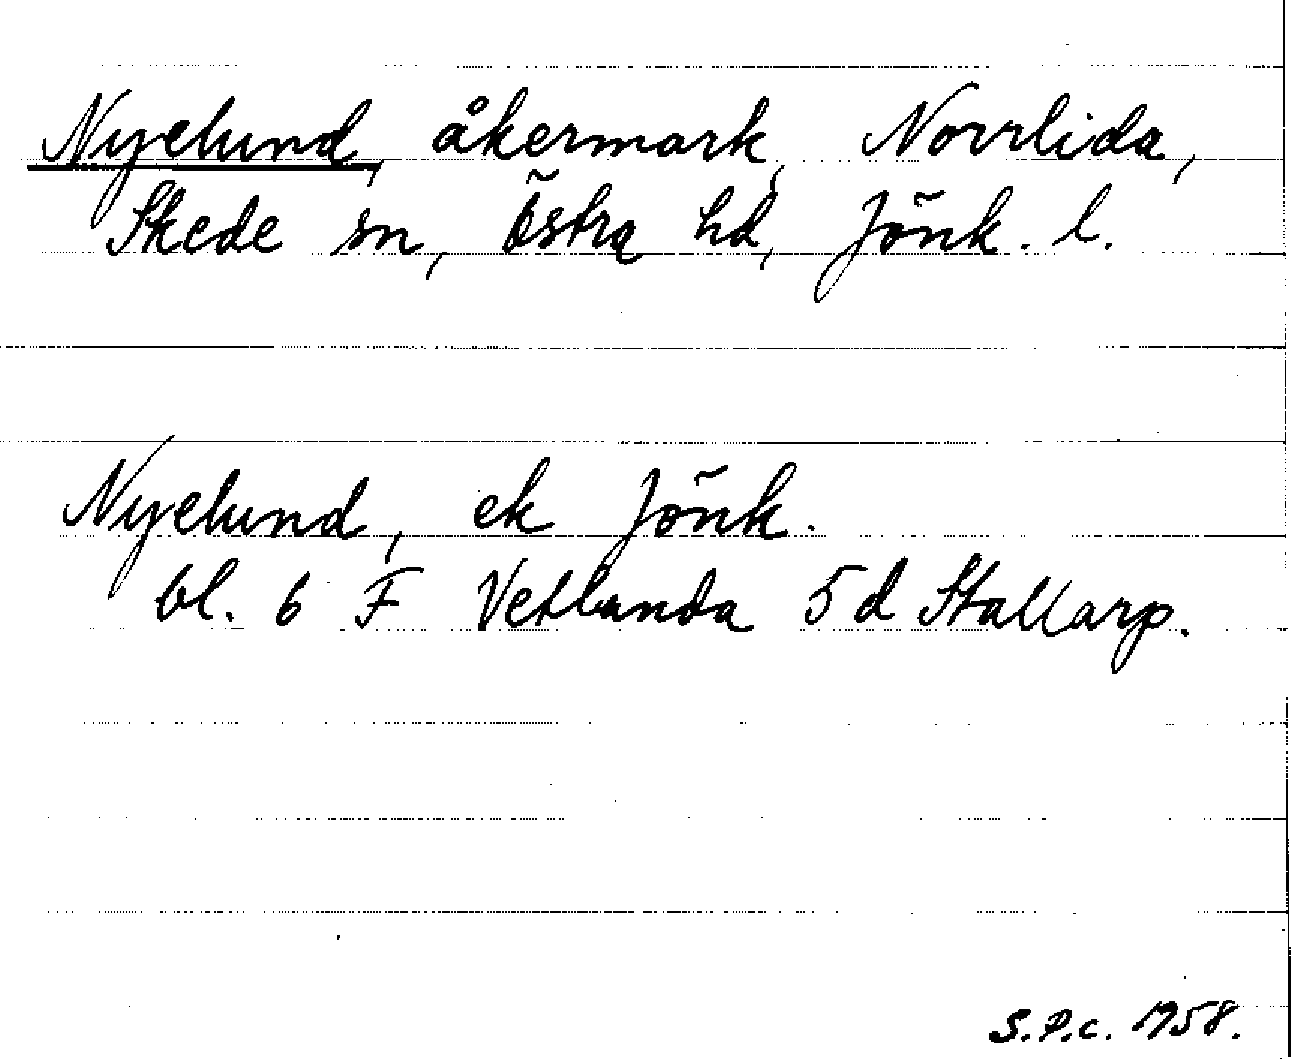 Nyelund, åkermark, Norrlida,
Skede sn, Östra hd, Jönk. l.
Nyelund, ek Jönk.
bl. 6 F Vetlanda 5 d Stallarp.
S.P.c. 1958.